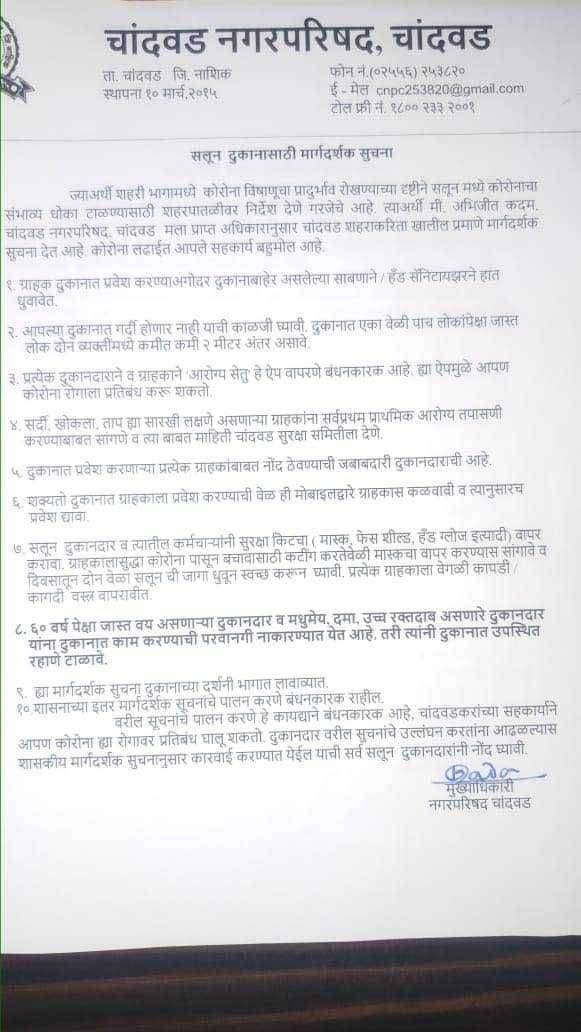 चांदवड नगरपरिषद, चांदवड
ता. चांदवड जि. नाशिक
स्थापना १० मार्च,२०१५
फोन नं.(०२५५६) २५३८२०
ई - मेल cnpc253820@gmail.com
टोल फ्री नं. १८०० २३३ २००१
सलून दुकानासाठी मार्गदर्शक सुचना
ज्याअर्थी शहरी भागामध्ये कोरोना विषाणूचा प्रादुर्भाव रोखण्याच्या दृष्टीने सलून मध्ये कोरोनाचा
संभाव्य धोका टाळण्यासाठी शहरपातळीवर निर्देश देणे गरजेचे आहे. त्याअर्थी मी, अभिजीत कदम,
चांदवड नगरपरिषद, चांदवड मला प्राप्त अधिकारानुसार चांदवड शहराकरिता खालील प्रमाणे मार्गदर्शक
सूचना देत आहे. कोरोना लढाईत आपले सहकार्य बहुमोल आहे.
१. ग्राहक दुकानात प्रवेश करण्याअगोदर दुकानाबाहेर असलेल्या साबणाने / हँड सॅनिटायझरने हात
धुवावेत.
२. आपल्या दुकानात गर्दी होणार नाही याची काळजी घ्यावी. दुकानात एका वेळी पाच लोकांपेक्षा जास्त
लोक दोन व्यक्तींमध्ये कमीत कमी २ मीटर अंतर असावे.
३. प्रत्येक दुकानदाराने व ग्राहकाने 'आरोग्य सेतु' हे ऐप वापरणे बंधनकारक आहे. ह्या ऐपमुळे आपण
कोरोना रोगाला प्रतिबंध करू शकतो.
४. सर्दी, खोकला, ताप ह्या सारखी लक्षणे असणाऱ्या ग्राहकांना सर्वप्रथम प्राथमिक आरोग्य तपासणी
करण्याबाबत सांगणे व त्या बाबत माहिती चांदवड सुरक्षा समितीला देणे.
५. दुकानात प्रवेश करणाऱ्या प्रत्येक ग्राहकांबाबत नोंद ठेवण्याची जबाबदारी दुकानदाराची आहे.
६. शक्यतो दुकानात ग्राहकाला प्रवेश करण्याची वेळ ही मोबाइलद्वारे ग्राहकास कळवावी व त्यानुसारच
प्रवेश द्यावा.
७. सलून दुकानदार व त्यातील कर्मचाऱ्यांनी सुरक्षा किटचा ( मास्क, फेस शील्ड, हँड ग्लोज इत्यादी) वापर
करावा. ग्राहकालासुद्धा कोरोना पासून बचावासाठी कटींग करतेवेळी मास्कचा वापर करण्यास सांगावे व
दिवसातून दोन वेळा सलून ची जागा धुवून स्वच्छ करून घ्यावी. प्रत्येक ग्राहकाला वेगळी कापडी /
कागदी वस्त्र वापरावीत.
८. ६० वर्ष पेक्षा जास्त वय असणाऱ्या दुकानदार व मधुमेय, दमा, उच्च रक्तदाब असणारे दुकानदार
यांना दुकानात काम करण्याची परवानगी नाकारण्यात येत आहे. तरी त्यांनी दुकानात उपस्थित
रहाणे टाळावे.
९. ह्या मार्गदर्शक सुचना दुकानाच्या दर्शनी भागात लावाव्यात.
१० शासनाच्या इतर मार्गदर्शक सूचनांचे पालन करणे बंधनकारक राहील.
वरील सूचनांचे पालन करणे हे कायद्याने बंधनकारक आहे, चांदवडकरांच्या सहकार्याने
आपण कोरोना ह्या रोगावर प्रतिबंध घालू शकतो. दुकानदार वरील सुचनांचे उल्लंघन करतांना आढळल्यास
शासकीय मार्गदर्शक सुचनानुसार कारवाई करण्यात येईल याची सर्व सलून दुकानदारांनी नोंद घ्यावी.
मुख्याधिकारी
नगरपरिषद चांदवड